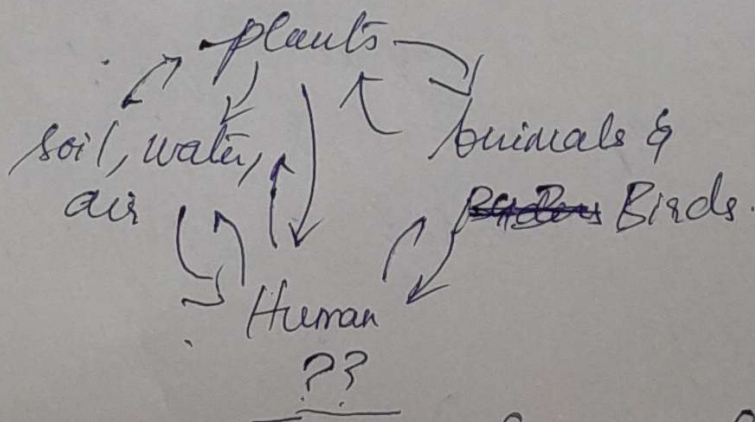 plants
soil, water, Animals &
air Birds.
Human
??